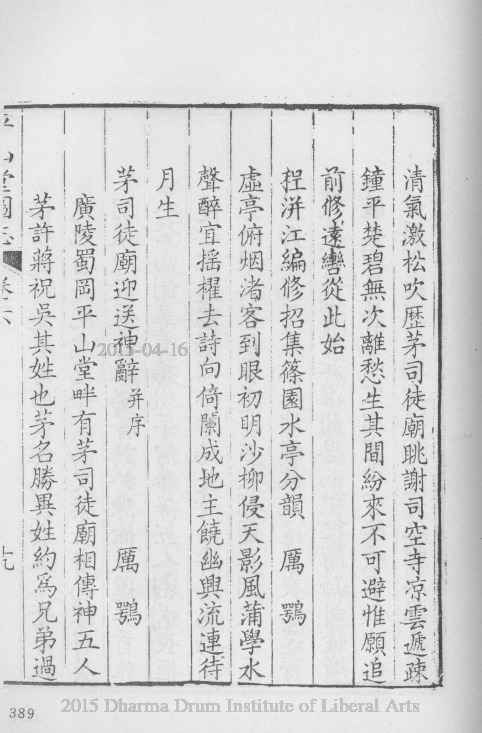 清氣激松吹歴茅司徒廟眺謝司空寺凉雲遞疎
鐘平楚碧無次離愁生其間紛來不可避惟願追
前修遠轡從此始
程洴江編修招集篠園水亭分韻 厲鶚
虛亭俯烟渚客到眼初明沙柳侵天影風蒲學水
聲醉宜搖櫂去詩向倚闌成地主饒幽興流連待
月生
茅司徒廟迎送神辭并序 厲鶚
廣陵蜀岡平山堂畔有茅司徒廟相傳神五人
茅許蔣祝吳其姓也茅名勝異姓約爲兄弟過
平山堂圖志 卷六
389
2015-04-16
2015 Dharma Drum Institute of Liberal Arts